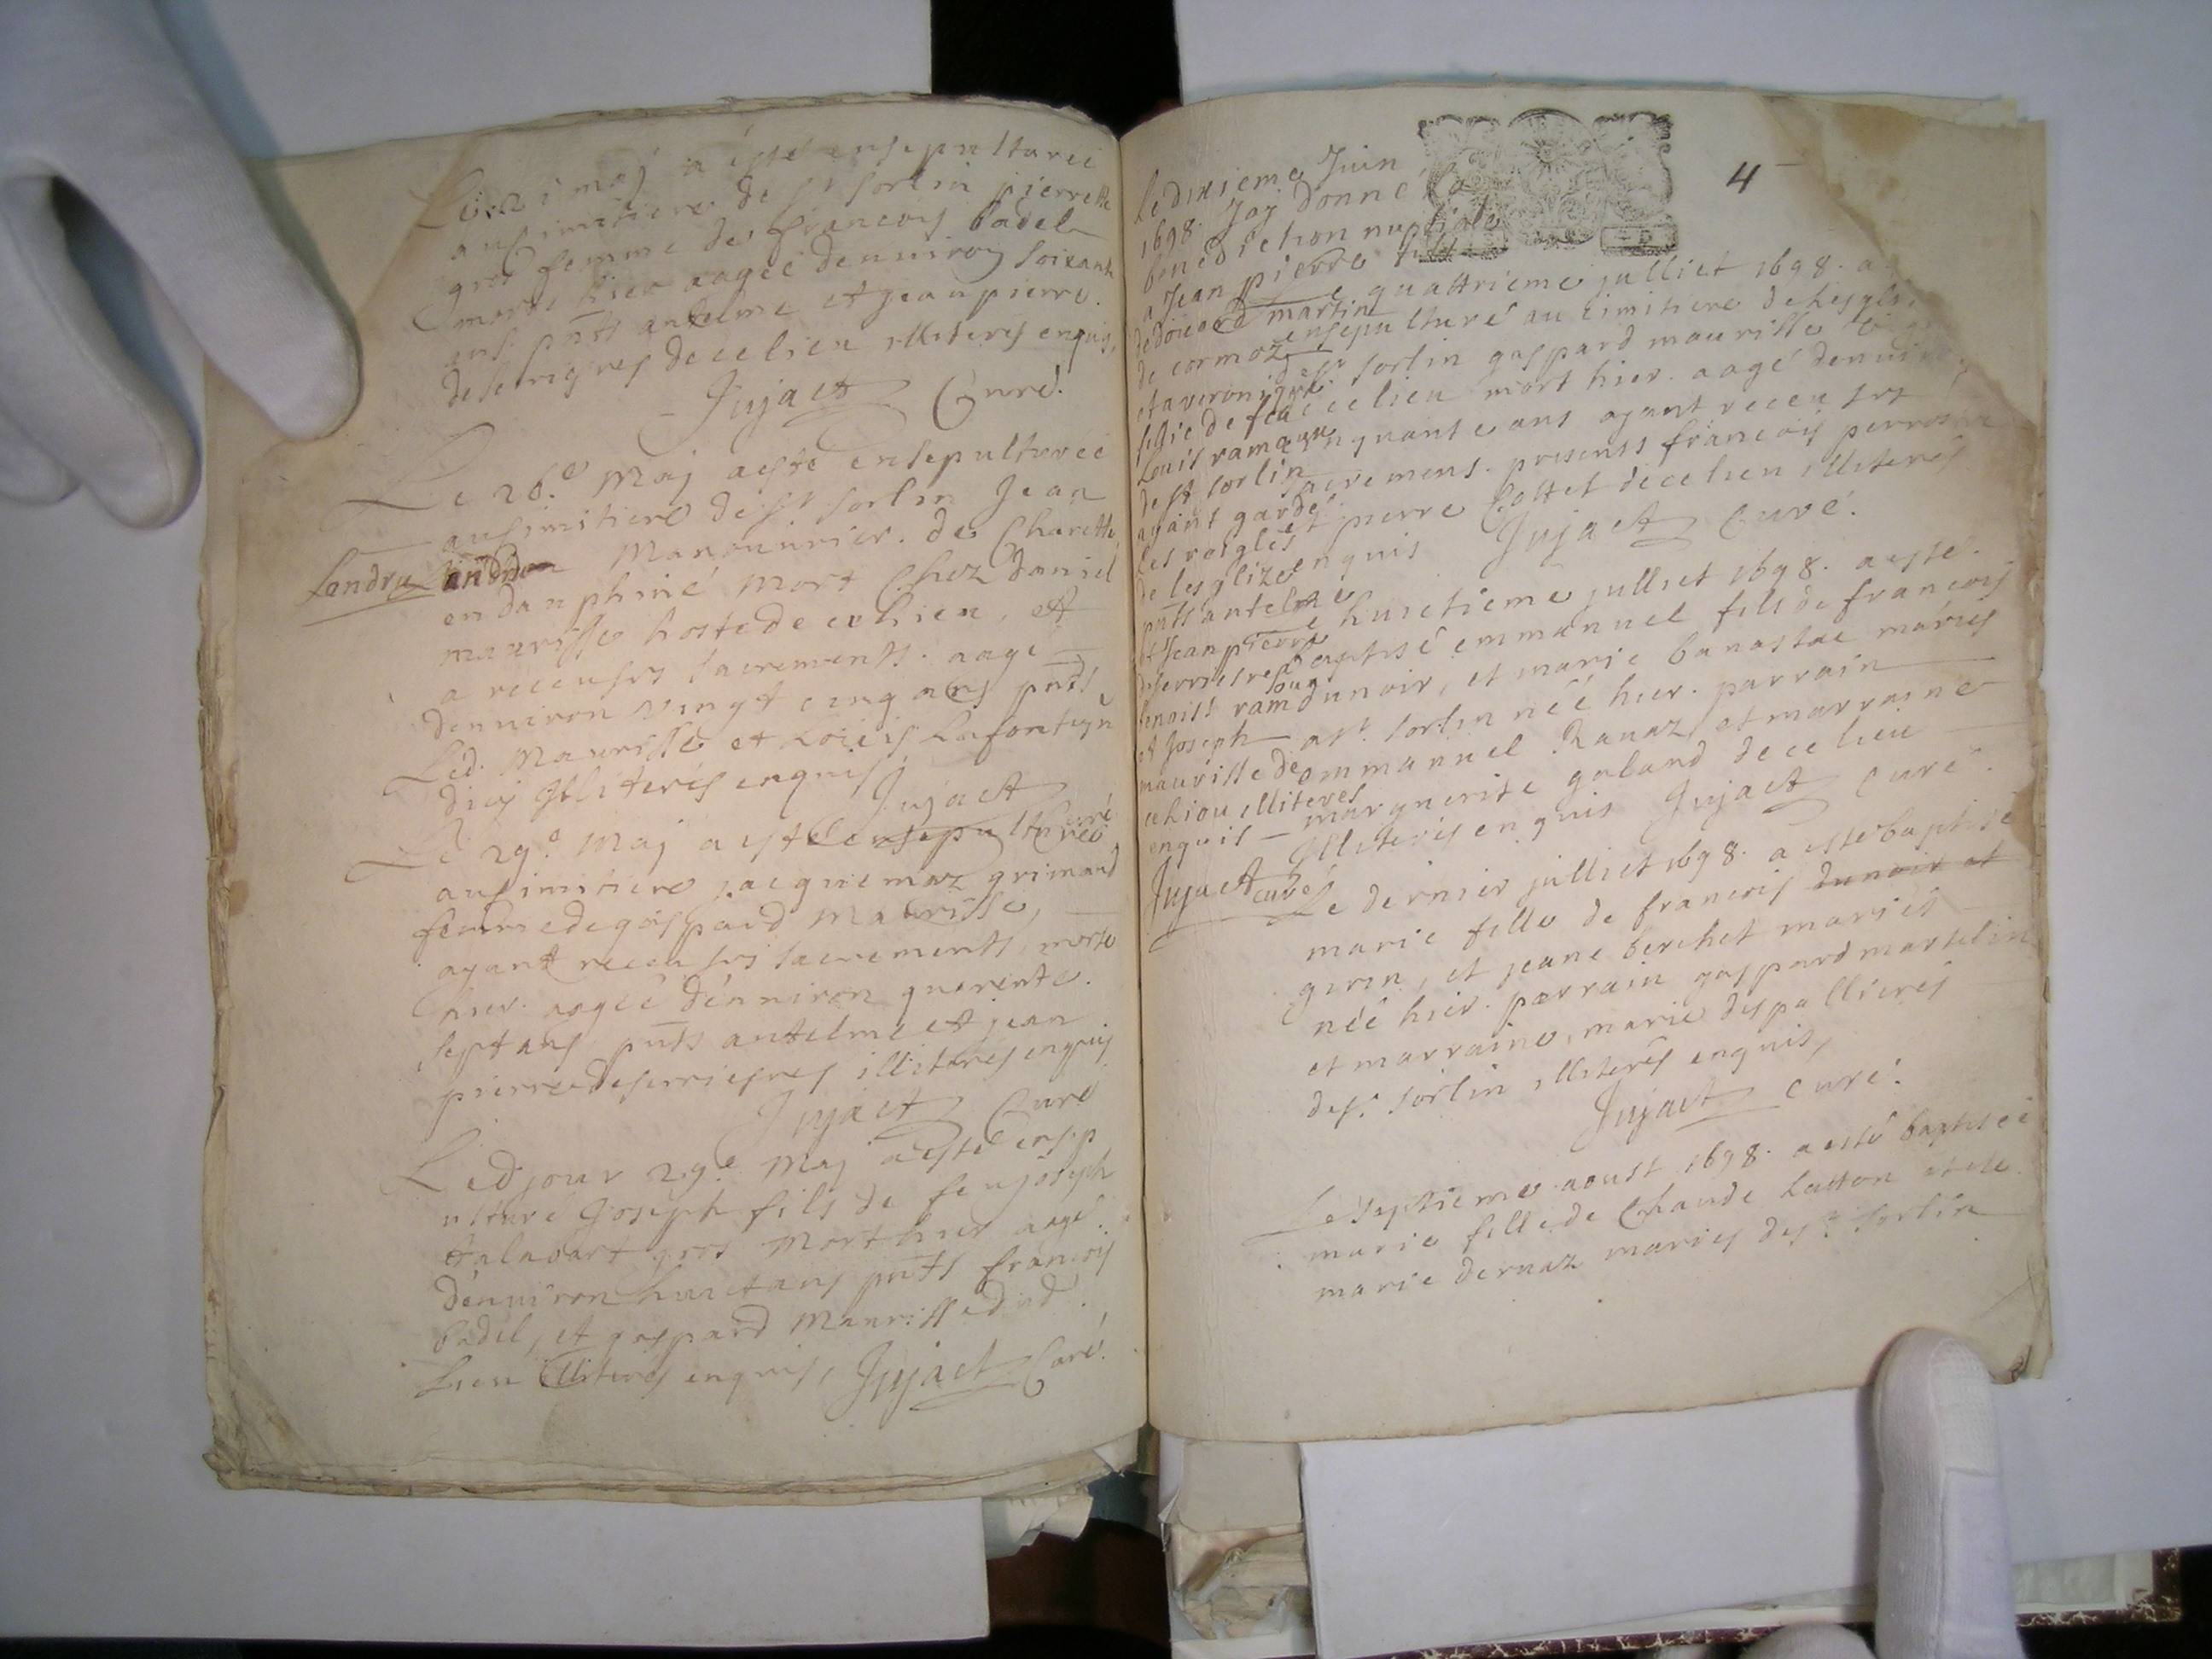 maj a esté ensepulturee
au simitiere de st sorlin pierrette
gros femme de francois badel
morte hier aagée denuiron soixante
ans. pnts antelme et jean pierre
deserriesres de ce lieu illiterés enquis,
Jujact Curé.
Le 26.e maj a esté ensepulturée
au simitiere de st sorlin Jean
Landru manouurier. de Charette
en dauphiné mort Chez daniel
maurisse hoste de ce lieu, et
a receu ses sacrements. aagé
denuiron vingt cinq ans pnts
Led. maurisse et Loüis
dicy illiterés enquis,
Jujact
curé
Le 29.e maj a esté ensepulturée
au simitiere jacquemaz grimand
femme de gaspard maurisse,
ayant receu ses sacrements, morte
hier. aagée denuiron quarente.
sept ans pnts antelme et jean
pierre deserriesres illiterés enquis
Jujact Curé
Led jour 29.e maj a esté ensep
ulturé Joseph fils de feu joseph
talabart gros mort hier aagé.
denuiron huict ans pnts francois
badel, et gaspard maurisse dud.
Lieu illiterés enquis, Jujact Curé.
4
Le dixieme Juin
1698. Jay donné la
benediction nuptiale
a Jean pierre
de doüard martin
de cormoz
et a veronique
fille de feu
Louis ramoux
de st sorlin
ayant gardé
les raigles
de lesglize
pnts antelme
et Jean pierre
deserriesres
benoist ramoux
et Joseph
maurisse de
ce liou illiteres
enquis
Jujact curé
quattrieme julliet 1698. a
ensepulturé au simitiere de lesglise
de st sorlin gaspard maurisse
de ce lieu mort hier. aagé denuiron
cinquante ans ayant receu ses
sacremens. presents francois
et pierre Cottet de ce lieu illiterés
enquis Jujact Curé.
Le huictieme julliet 1698. a esté
baptisé emmanuel fils de francois
dunoir, et marie banastae mariés
a st sorlin né hier. parrain
emmanuel Ranaz, et marraine
marguerite galand de ce lieu
illiterés enquis Jujact Curé.
Le dernier julliet 1698. a esté baptisée
marie fille de francois dunoir et
girin, et jeane berchet mariés
née hier. parrain gaspard martelin
et marraine, marie despallieres
de st sorlin illiterés enquis,
Jujact curé.
Le septieme aoust 1698. a esté baptisée
marie fille de Claude
marie dernaz mariés de st sorlin